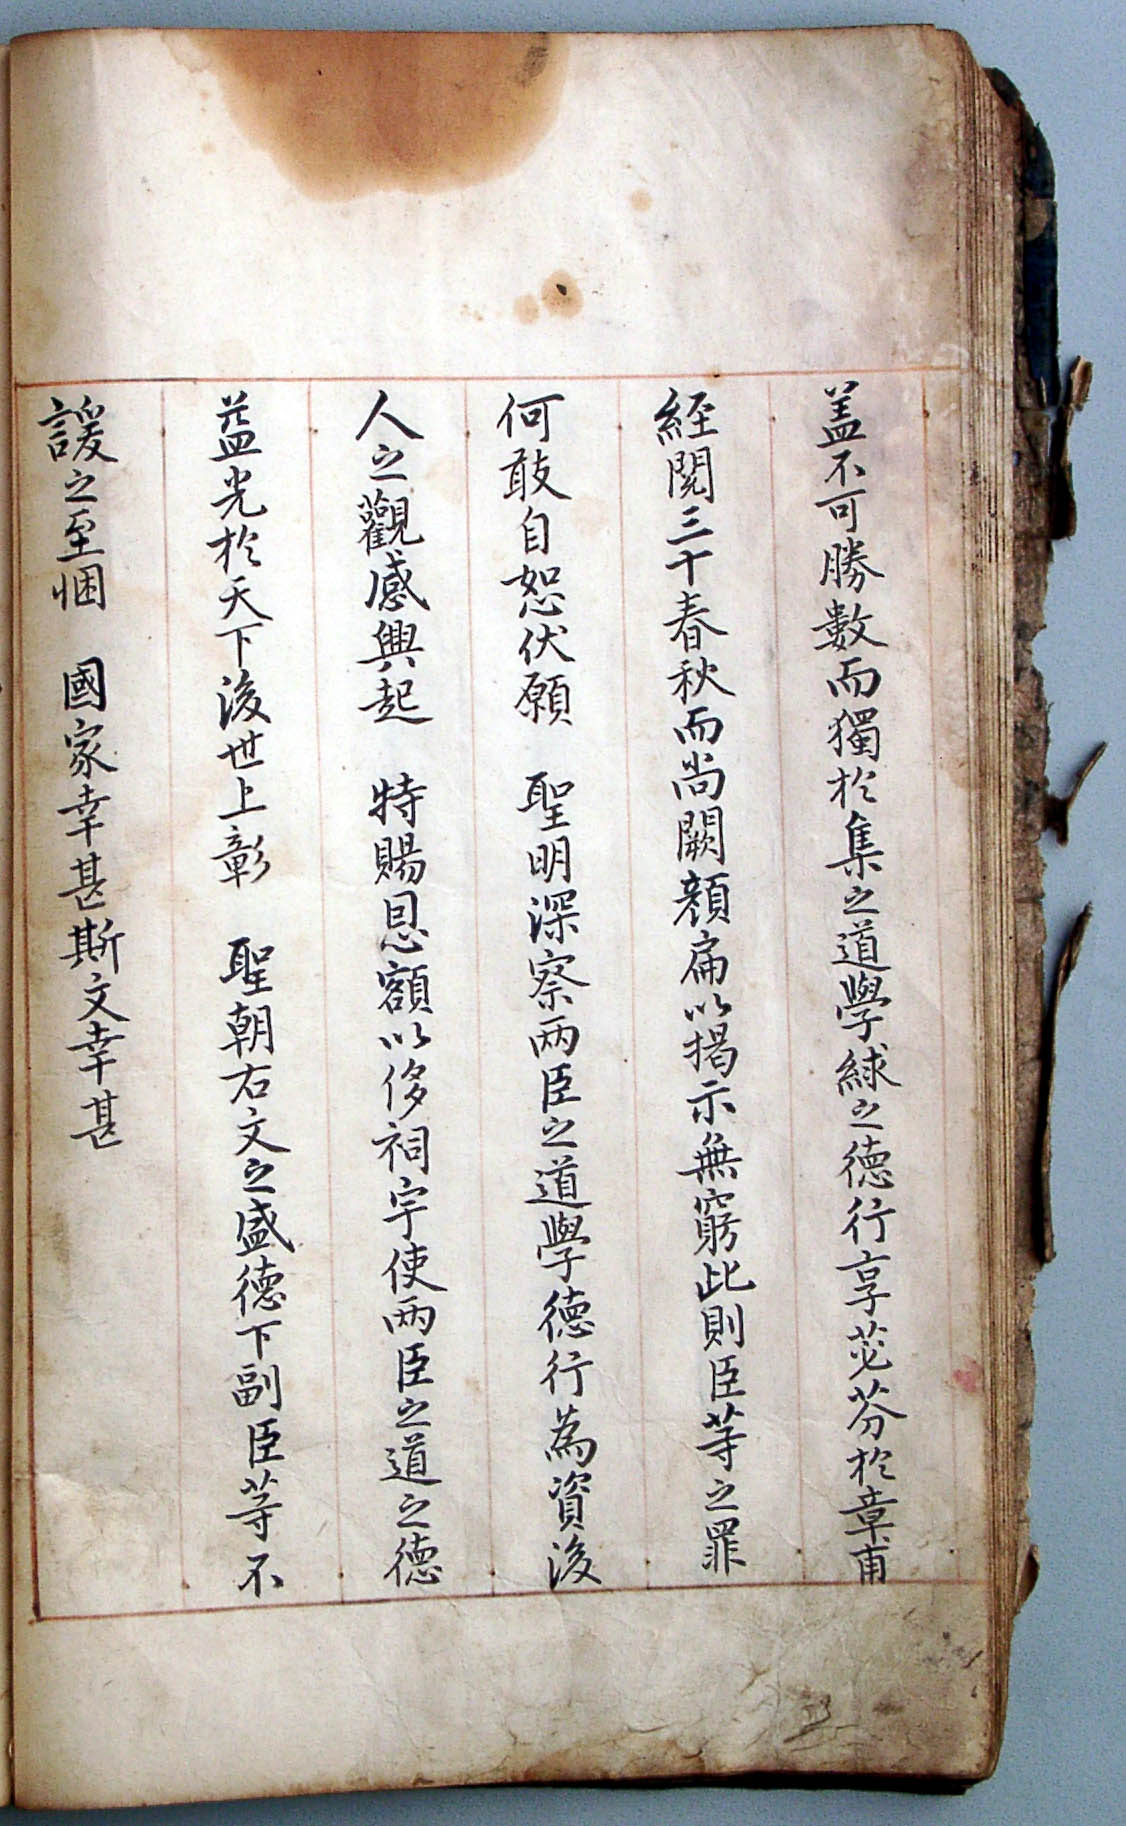 盖不可勝數而獨於集之道學絿之德行享苾芬於章甫
經閱三十春秋而尚闕顔扁以揭示無窮此則臣等之罪
何敢自恕伏願　聖明深察兩臣之道學德行為資後
人之觀感興起　特賜恩額以侈祠宇使兩臣之道之德
益光於天下後世上彰　聖朝右文之盛德下副臣等不
諼之至悃　國家幸甚斯文幸甚